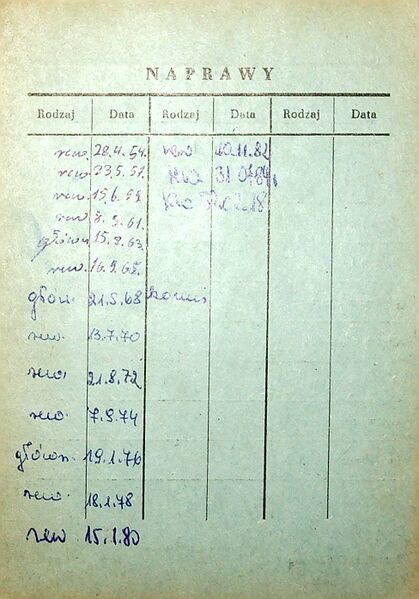 NAPRAWY
Rodzaj Data Rodzaj Data Rodzaj Data
rew. 28.4.54. rew 10.11.82
rew. 23.5.57. rew 31 07 84
rew. 15.6.59
rew. 8.9.61.
główn. 15.8.63.
rew. 16.9.65.
głow. 21.5.68
rew. 13.7.70
rew. 21.8.72
rew. 7.9.74
główn. 19.1.76
rew. 18.1.78
rew 15.1.80